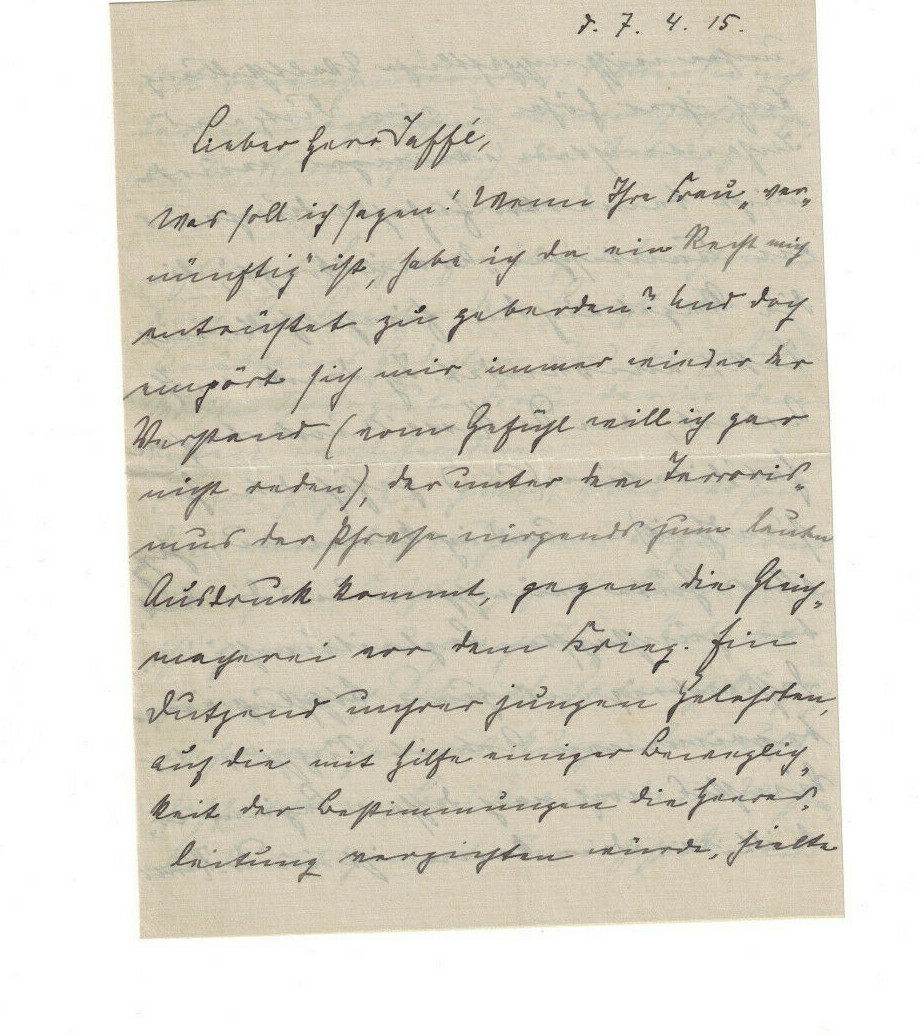 d. 7. 4. 15.
Lieber Herr Jaffé,
Was soll ich sagen! Wenn Ihre Frau „ver-
nünftig" ist, habe ich da ein Recht mich
entrüstet zu geberden? Und doch
empört sich mir immer wieder der
Verstand (vom Gefühl will ich gar
nicht reden), der unter dem Terroris-
mus der Phrase nirgends zum lauten
Ausdruck kommt, gegen die Gleich-
macherei vor dem Krieg. Ein
Dutzend unsrer jungen Gelehrten,
auf die mit Hilfe einiger Beweglich-
keit der Bestimmungen die Heeres-
leitung verzichten würde, hielte